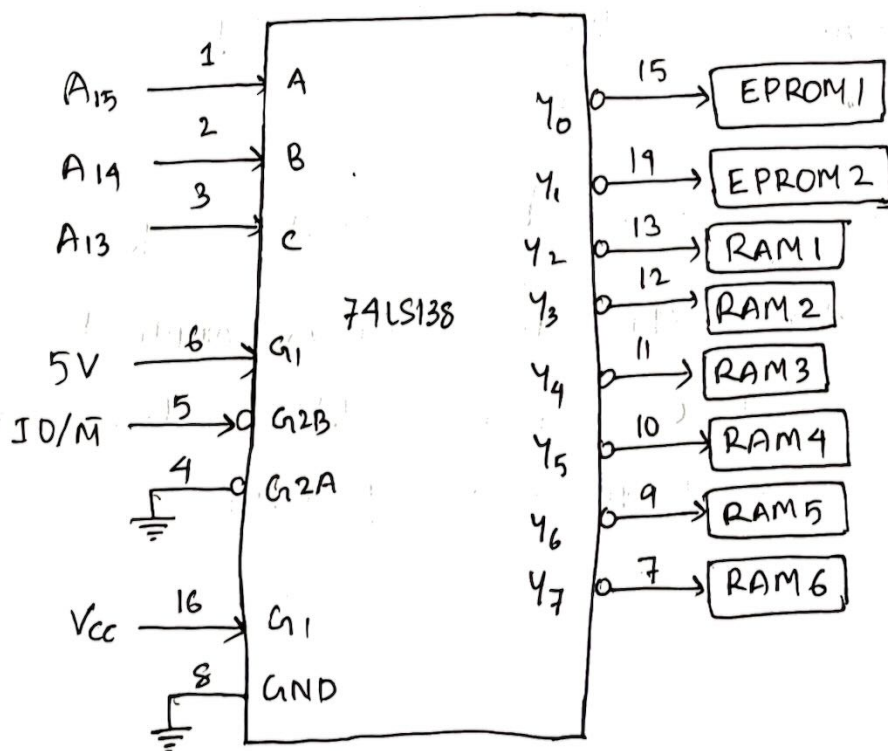 A15 1 A
A14 2 B
A13 3 C
5V 6 G1
IO/M̅ 5 G2B
4 G2A
VCC 16 G1
8 GND
74LS138
Y0 15 EPROM 1
Y1 14 EPROM 2
Y2 13 RAM 1
Y3 12 RAM 2
Y4 11 RAM 3
Y5 10 RAM 4
Y6 9 RAM 5
Y7 7 RAM 6